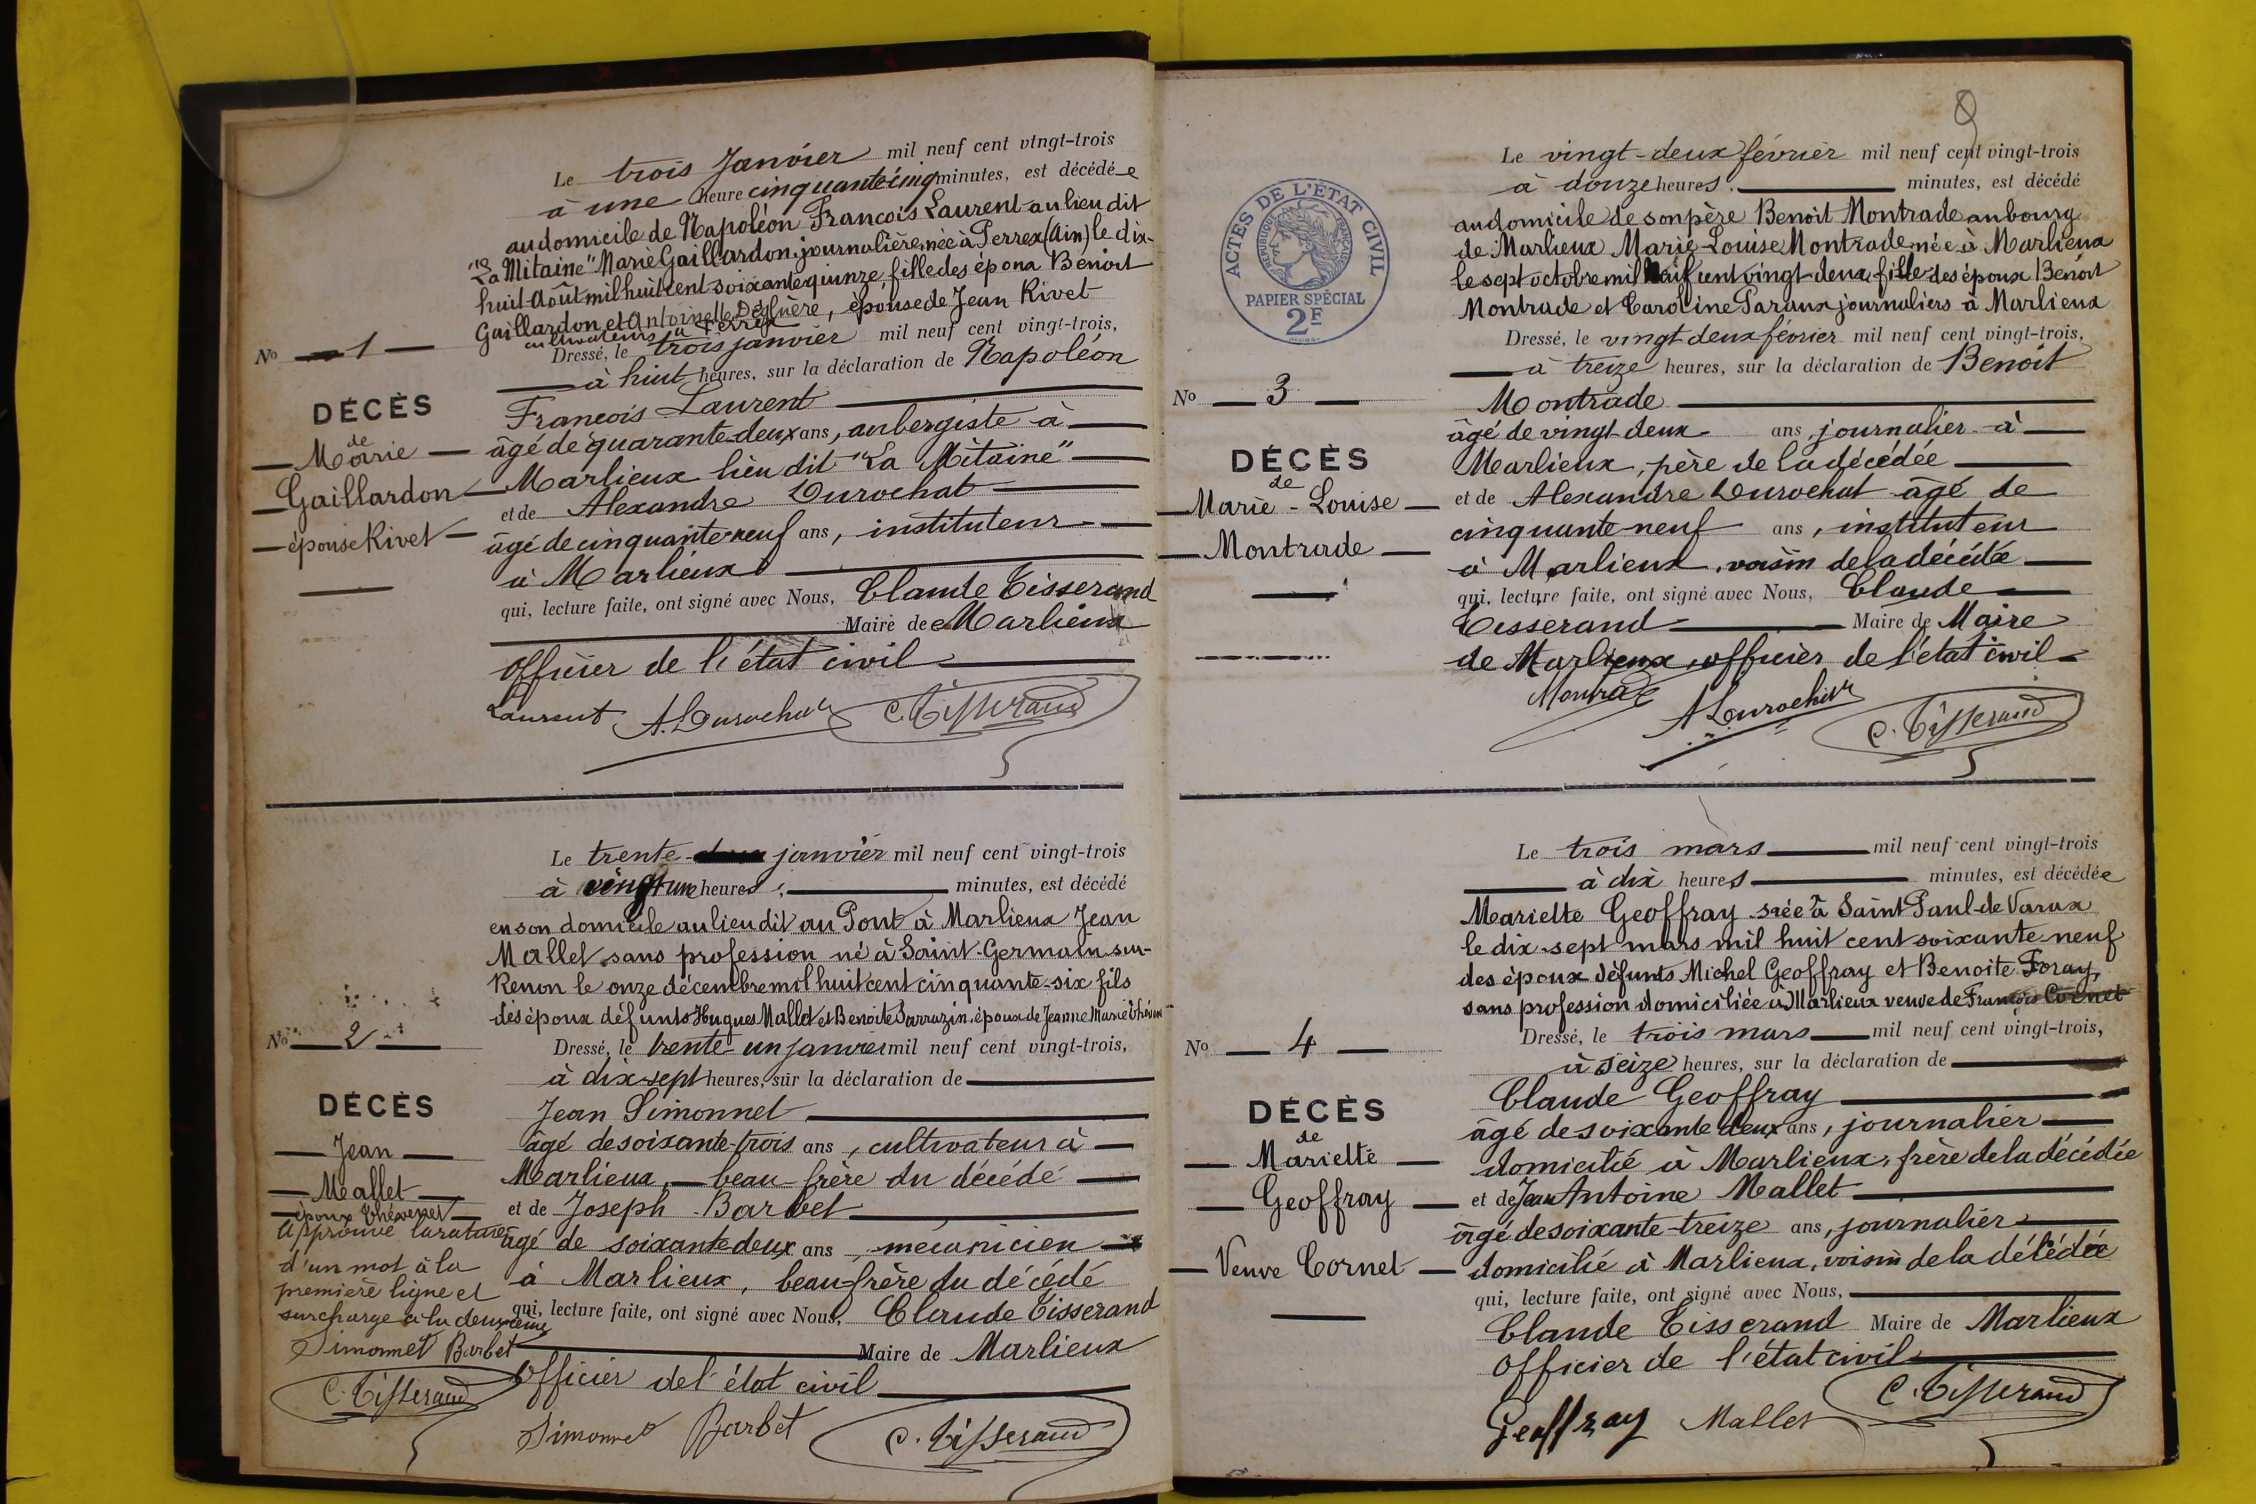 Le trois Janvier mil neuf cent vingt-trois
à une heure cinquante cinq minutes, est décédée
au domicile de Napoléon François Laurent au lieu dit
"La Mitaine" Marie Gaillardon, journalière, née à Perrex (Ain) le dix-
huit Août mil huit cent soixante quinze, fille des époux Benoit
Gaillardon et Antoinette , épouse de Jean Rivet
cultivateurs à Perrex
No 1
Dressé, le trois janvier mil neuf cent vingt-trois,
à huit heures, sur la déclaration de Napoléon
François Laurent
DÉCÈS
de
Marie
Gaillardon
épouse Rivet
âgé de quarante-deux ans, aubergiste à
Marlieux lieu dit "La Mitaine"
et de Alexandre Durochat
âgé de cinquante-neuf ans, instituteur
à Marlieux
qui, lecture faite, ont signé avec Nous, Claude Tisserand
Maire de Marlieux
officier de l'état civil
Laurent A. Durochat C. Tisserand
Le trente janvier mil neuf cent vingt-trois
à vingt une heures minutes, est décédé
en son domicile au lieu dit au Pont à Marlieux Jean
Mallet sans profession né à Saint-Germain-sur-
Renon le onze décembre mil huit cent cinquante-six fils
des époux défunts Hugues Mallet et Benoite Sarrazin, époux de Jeanne Marie Thévenet
No 2
Dressé, le trente-un janvier mil neuf cent vingt-trois,
à dix-sept heures, sur la déclaration de
Jean Simonnet
DÉCÈS
Jean
Mallet
époux Thévenet
âgé de soixante-trois ans, cultivateur à
Marlieux, beau-frère du décédé
et de Joseph Barbet
âgé de soixante deux ans, mécanicien
à Marlieux, beau-frère du décédé
qui, lecture faite, ont signé avec Nous, Claude Tisserand
Maire de Marlieux
officier de l'état civil
Approuvé la rature
d'un mot à la
première ligne et
surcharge à la deuxième
Simonnet Barbet
C. Tisserand
Simonnet Barbet C. Tisserand
ACTES DE L'ETAT CIVIL
REPUBLIQUE FRANÇAISE
PAPIER SPÉCIAL
2F
Le vingt-deux février mil neuf cent vingt-trois
à douze heures. minutes, est décédé
au domicile de son père Benoit Montrade au bourg
de Marlieux Marie-Louise Montrade née à Marlieux
le sept octobre mil neuf cent vingt-deux, fille des époux Benoit
Montrade et Caroline Paraux journaliers à Marlieux
Dressé, le vingt deux février mil neuf cent vingt-trois,
à treize heures, sur la déclaration de Benoit
No 3
Montrade
DÉCÈS
de
Marie-Louise
Montrade
âgé de vingt-deux ans, journalier à
Marlieux, père de la décédée
et de Alexandre Durochat âgé de
cinquante neuf ans, instituteur
à Marlieux, voisin de la décédée
qui, lecture faite, ont signé avec Nous, Claude
Tisserand Maire de Maire
de Marlieux, officier de l'état civil
Montrade A Durochat C. Tisserand
Le trois mars mil neuf cent vingt-trois
à dix heures minutes, est décédée
Mariette Geoffray née à Saint Paul-de Varax
le dix-sept mars mil huit cent soixante neuf
des époux défunts Michel Geoffray et Benoite Foray,
sans profession domiciliée à Marlieux veuve de François Cornet
No 4
Dressé, le trois mars mil neuf cent vingt-trois,
à seize heures, sur la déclaration de
Claude Geoffray
DÉCÈS
de
Mariette
Geoffray
Veuve Cornet
âgé de soixante deux ans, journalier
domicilié à Marlieux, frère de la décédée
et de Jean Antoine Mallet
âgé de soixante-treize ans, journalier
domicilié à Marlieux, voisin de la décédée
qui, lecture faite, ont signé avec Nous,
Claude Tisserand Maire de Marlieux
officier de l'état civil
Geoffray Mallet C. Tisserand